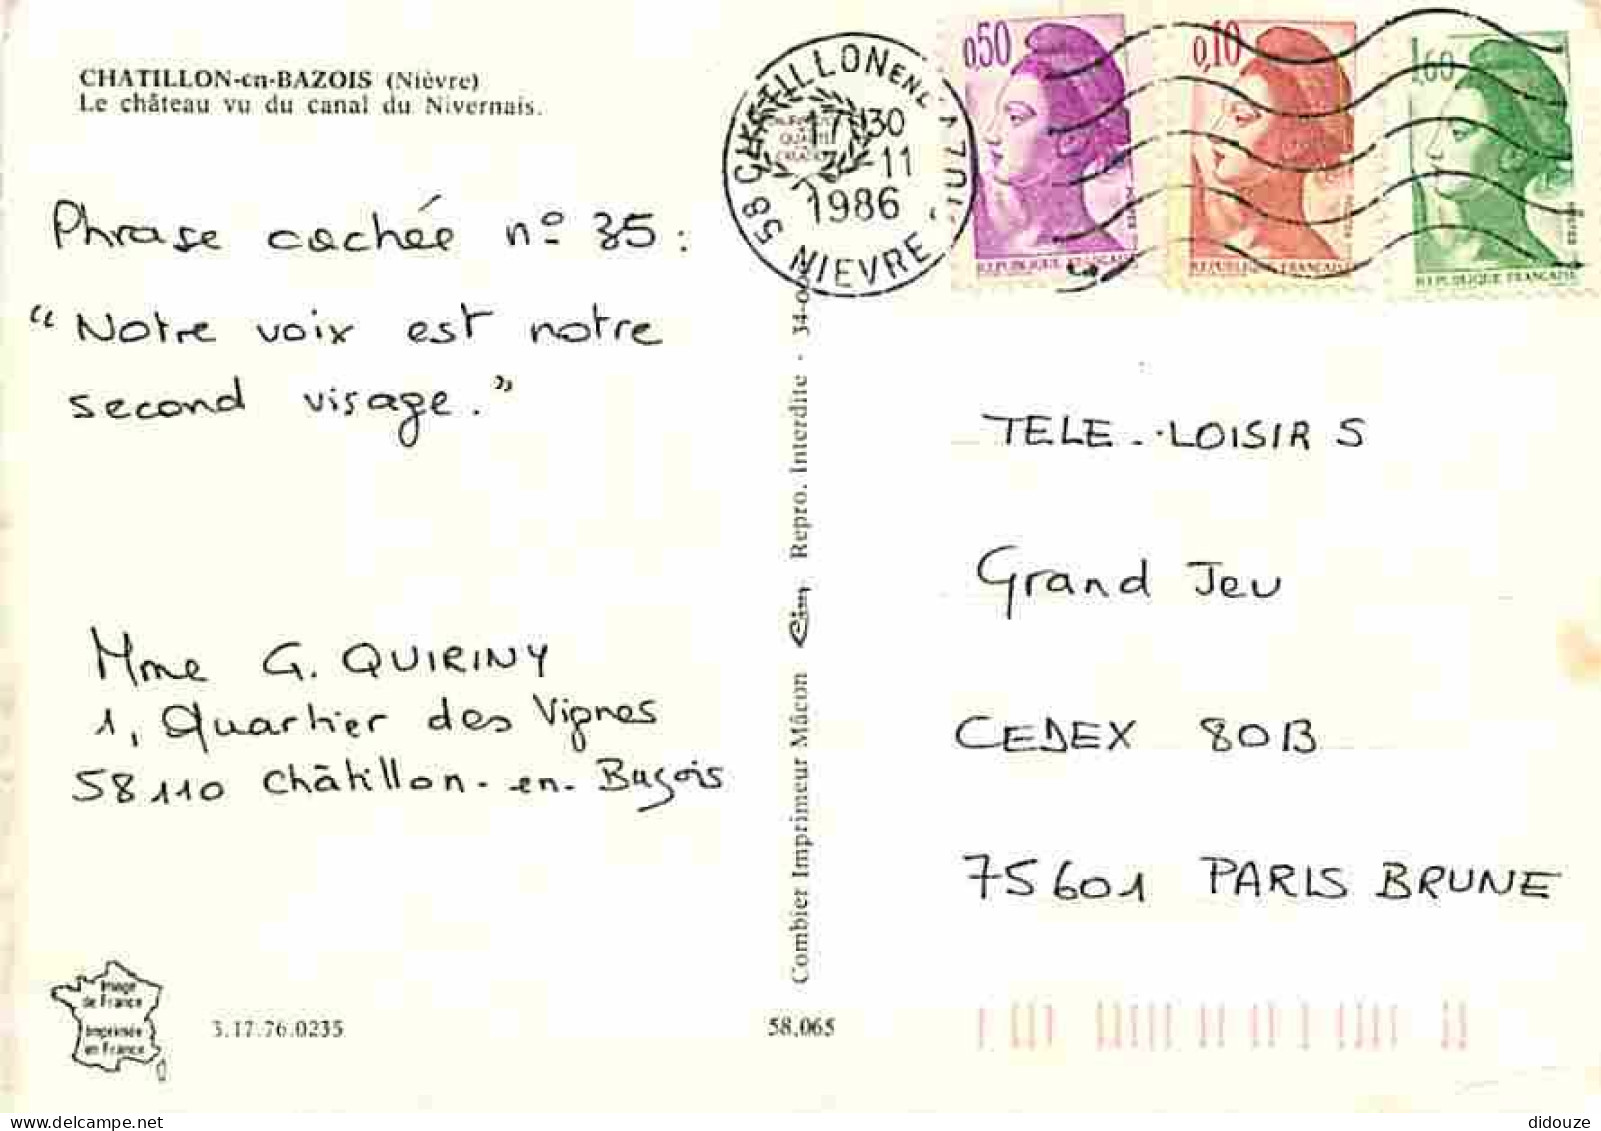 CHATILLON-en-BAZOIS (Nièvre)
Le château vu du canal du Nivernais.
Phrase cachée n° 35 :
"Notre voix est notre
second visage."
Mme G. QUIRINY
1, Quartier des Vignes
58110 Châtillon-en-Bazois
Image
de France
Imprimée
en France
3.17.76.0235
58.065
Combier Imprimeur Mâcon Cim Repro. Interdite -
58 CHATILLON EN
17 30
3-11
1986
NIEVRE
0,50
POSTES
REPUBLIQUE FRANÇAISE
0,10
REPUBLIQUE FRANÇAISE
1,60
POSTES
REPUBLIQUE FRANÇAISE
TELE-LOISIRS
Grand Jeu
CEDEX 80B
75601 PARIS BRUNE
didouze